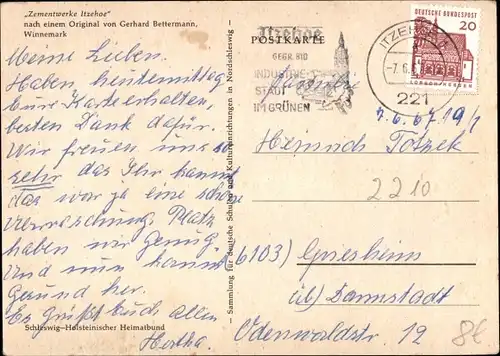 „Zementwerke Itzehoe"
nach einem Original von Gerhard Bettermann,
Winnemark
Meine Lieben.
Haben heute mittag
eure Karte erhalten,
besten Dank dafür.
Wir freuen uns so
sehr das Ihr kommt
das war ja eine schöne
Überraschung. Platz
haben wir genug.
Und nun kommt
gesund her.
Es Grüßt Euch Allen
Hertha.
Schleswig-Holsteinischer Heimatbund
Sammlung für deutsche Schulen und Kultureinrichtungen in Nordschleswig
Itzehoe
POSTKARTE
GEGR. 810
INDUSTRIE-
STADT
IM GRÜNEN
ITZEHOE
-7.6.
221
DEUTSCHE BUNDESPOST
20
7.6.67.19
Heinrich Totzek
2210
6103) Griesheim
üb) Darmstadt
Odenwaldstr 12